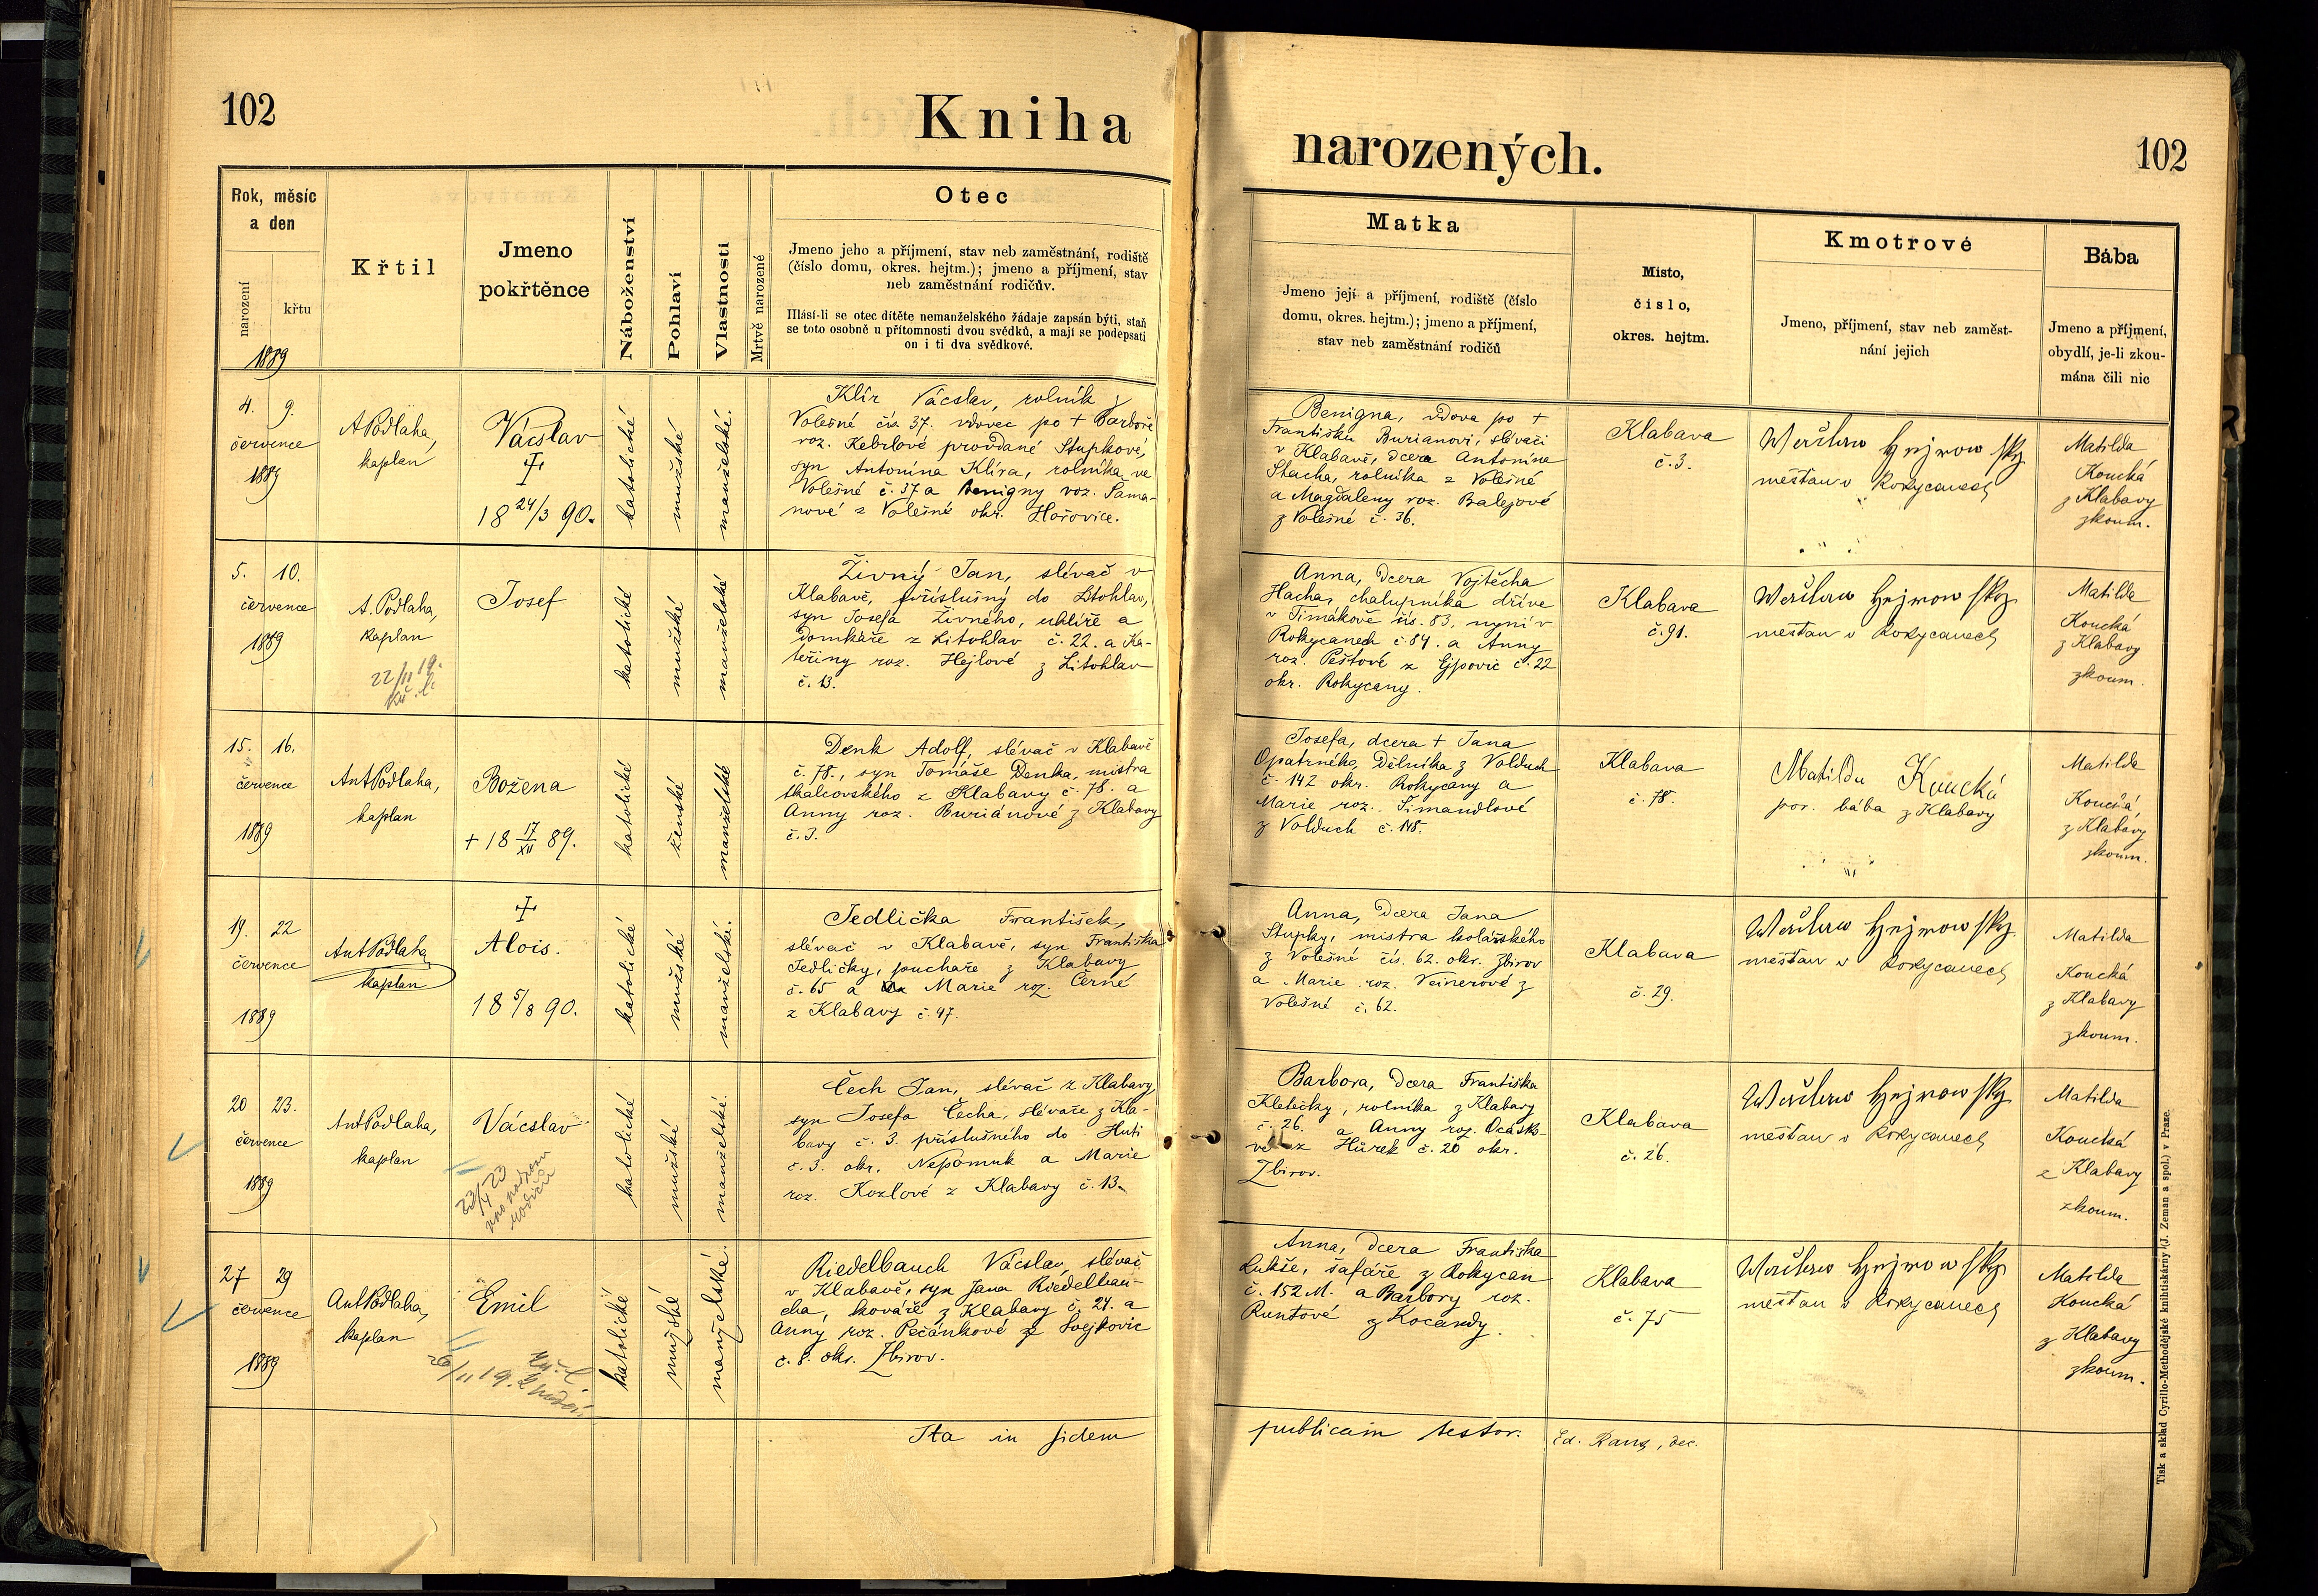 102
Kniha
narozených.
102
Rok, měsíc
a den
narození
křtu
1889
Křtil
Jmeno
pokřtěnce
Náboženství
Pohlaví
Vlastnosti
Mrtvě narozené
Otec
Jmeno jeho a příjmení, stav neb zaměstnání, rodiště
(číslo domu, okres. hejtm.); jmeno a příjmení, stav
neb zaměstnání rodičův.
Hlásí-li se otec dítěte nemanželského žádaje zapsán býti, staň
se toto osobně u přítomnosti dvou svědků, a mají se podepsati
on i ti dva svědkové.
Matka
Jmeno její a příjmení, rodiště (číslo
domu, okres. hejtm.); jmeno a příjmení,
stav neb zaměstnání rodičů
Místo,
číslo,
okres. hejtm.
Kmotrové
Jmeno, příjmení, stav neb zaměst-
nání jejich
Bába
Jmeno a příjmení,
obydlí, je-li zkou-
mána čili nic
4. 9.
července
1889
APodlaha,
kaplan
Vácslav
18 24/3 90.
katolické
mužské
manželské.
Klír Vácslav, rolník v
Volešné čís 37. vdovec po + Barboře
roz. Kebrlové provdané Stupkové,
syn Antonína Klíra, rolníka ve
Volešné č. 37 a Benigny roz. Šama-
nové z Volešné okr. Hořovice.
Benigna, vdova po +
Františku Burianovi, slévači
v Klabavě, dcera Antonína
Stacha, rolníka z Volešné
a Magdaleny roz. Balejové
z Volešné č. 36.
Klabava
č. 3.
měšťan v Rokycanech
Matilda
Koucká
z Klabavy
zkoum.
5. 10.
července
1889
A. Podlaha,
kaplan
22/11 19.
Josef
katolické
mužské
manželské
Živný Jan, slévač v
Klabavě, příslušný do Litohlav,
syn Josefa Živného, uhlíře a
domkáře z Litohlav č. 22. a Ka-
teřiny roz. Hejlové z Litohlav
č. 13.
Anna, dcera Vojtěcha
Hacha, chalupníka dříve
v Timákově čís. 83, nyní v
Rokycanech č. 84. a Anny
roz. Peštové z Ejpovic č. 22
okr. Rokycany.
Klabava
č. 91.
měšťan v Rokycanech
Matilda
Koucká
z Klabavy
zkoum.
15. 16.
července
1889
AntPodlaha,
kaplan
Božena
+ 18 17/XII 89.
katolické
ženské
manželské
Denk Adolf, slévač v Klabavě
č. 78., syn Tomáše Denka, mistra
tkalcovského z Klabavy č. 78. a
Anny roz. Buriánové z Klabavy
č. 3.
Josefa, dcera + Jana
Opatrného, dělníka z Volduch
č. 142 okr. Rokycany a
Marie roz. Šimandlové
z Volduch č. 148.
Klabava
č. 78.
Matilda Koucká
por. bába z Klabavy
Matilda
Koucká
z Klabavy
zkoum.
19. 22
července
1889
AntPodlaha
kaplan
Alois.
18 5/8 90.
katolické
mužské
manželské.
Jedlička František,
slévač v Klabavě, syn Františka
Jedličky, puchaře z Klabavy
č. 65 a Marie roz. Černé
z Klabavy č. 47.
Anna, dcera Jana
Stupky, mistra kolářského
z Volešné čís. 62. okr. Zbirov
a Marie roz. Veinerové z
Volešné č. 62.
Klabava
č. 29.
měšťan v Rokycanech
Matilda
Koucká
z Klabavy
zkoum.
20 23.
července
1889
AntPodlaha,
kaplan
Vácslav
katolické
mužské
manželské.
Čech Jan, slévač z Klabavy,
syn Josefa Čecha, slévače z Kla-
bavy č. 3. příslušného do Huti
č. 3. okr. Nepomuk a Marie
roz. Kozlové z Klabavy č. 13.
Barbora, dcera Františka
Kletečky, rolníka z Klabavy
č. 26. a Anny roz. Ocásko-
vé z Hůrek č. 20 okr.
Zbirov.
Klabava
č. 26.
měšťan v Rokycanech
Matilda
Koucká
z Klabavy
zkoum.
27 29
července
1889
AntPodlaha,
kaplan
Emil
katolické
mužské
manželské.
Riedelbauch Vácslav, slévač
v Klabavě, syn Jana Riedelbau-
cha, kováře z Klabavy č. 24. a
Anny roz. Pečánkové z Svejkovic
č. 8. okr. Zbirov.
Anna, dcera Františka
Lukše, šafáře z Rokycan
č. 152 M. a Barbory roz.
Runtové z Kocandy.
Klabava
č. 75
měšťan v Rokycanech
Matilda
Koucká
z Klabavy
zkoum.
Ita in fidem
publicam testor.
Ed. Rang, dec.
Tisk a sklad Cyrillo-Methodějské knihtiskárny (J. Zeman a spol.) v Praze.